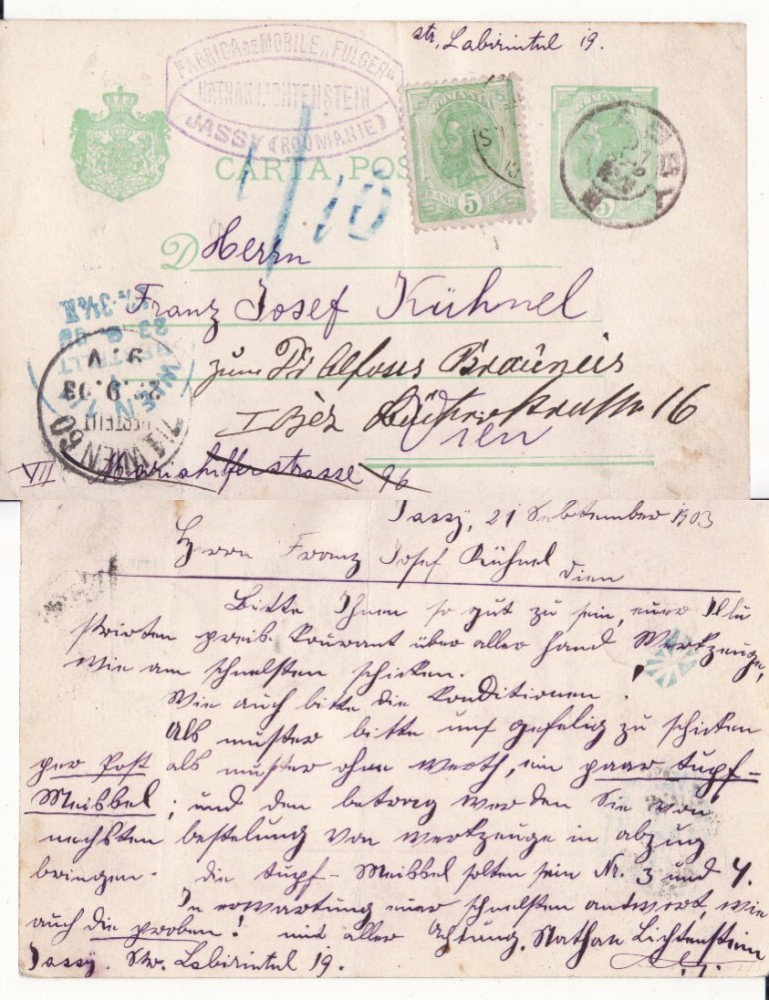 str. Labirintul 19.
FABRICA DE MOBILE "FULGER"
NATHAN LICHTENSTEIN
JASSY (ROUMANIE)
ROMANIA
5
ROMANIA
5
CARTA POS
1/10
D Herrn
Franz Josef Kühnel
zum Dr Alfons Brauneis
I Bez 16
Wien
VII Mariahilferstrasse 96
WIEN
BESTELLT
23
WIEN 60
BESTELLT
9.03
9.V
Jassy, 21 September 1903
Herrn Franz Josef Kühnel
Wien
Bitte Ihnen so gut zu sein, eurer Illu
strirten preis Kourant über aller hand Werkzeuge,
wie am schnelsten schicken.
Wie auch bitte die Konditionen.
Als muster bitte uns gefelig zu schicken
per Post als muster ohne werth, ein paar tupf-
Meissel; und den betrag werden Sie von
nechsten bestelung von werkzeuge in abzug
bringen. die tupf-Meissel solten sein Nr. 3 und 4.
In erwartung eurer schnelsten antwort, wie
auch die proben! mit aller Achtung, Nathan Lichtenstein
Jassy. Str. Labirintul 19.